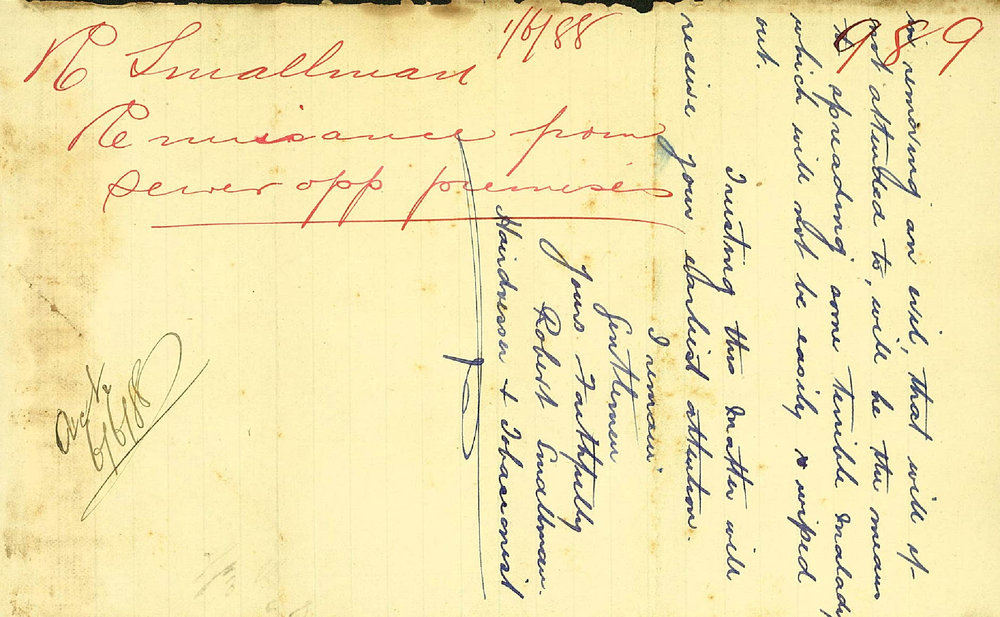 R Smallman
1/6/88
989
Re nuisance from
sewer opp premises
in removing an evil, that will if
not attended to, will be the means
of spreading some terrible malady
which will not be easily wiped
out.
Trusting this matter will
receive your earliest attention.
I remain
Gentlemen
Yours Faithfully
Robert Smallman.
Hairdresser & Tobacconist
6/6/88